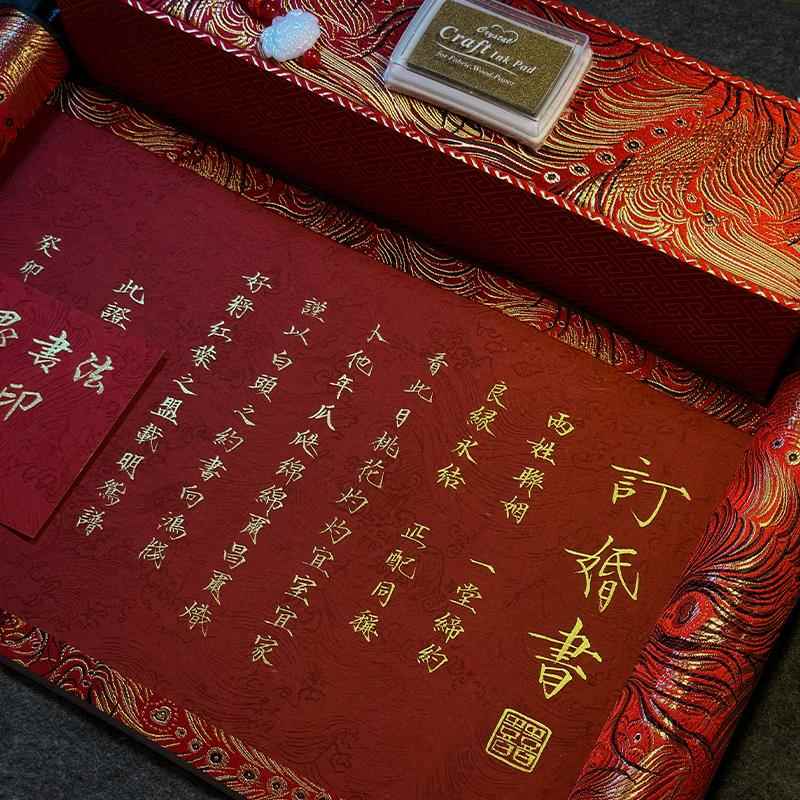 Crystal
Craft Ink Pad
for Fabric, Wood, Paper
訂婚書
兩姓聯姻 一堂締約
良緣永結 正配同稱
看此日桃花灼灼宜室宜家
卜他年瓜瓞綿綿爾昌爾熾
謹以白頭之約書向鴻牋
好將紅葉之盟載明鴛譜
此證
癸卯
書法
印